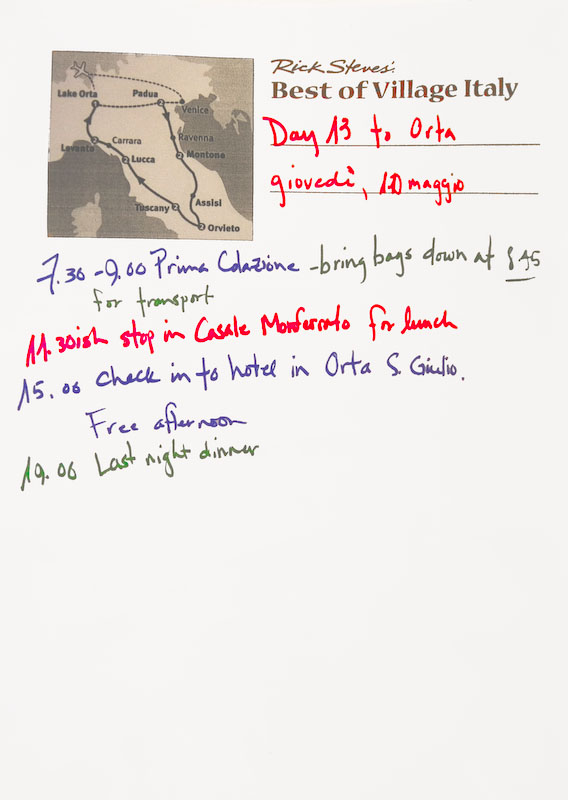 Rick Steves'
Best of Village Italy
Lake Orta
Padua
Venice
Ravenna
Carrara
Levanto
Lucca
Montone
Assisi
Tuscany
Orvieto
Day 13 to Orta
giovedì, 10 maggio
7.30 - 9.00 Prima Colazione - bring bags down at 8.45
for transport
11.30ish stop in Casale Monferrato for lunch
15.00 check in to hotel in Orta S. Giulio.
Free afternoon
19.00 Last night dinner